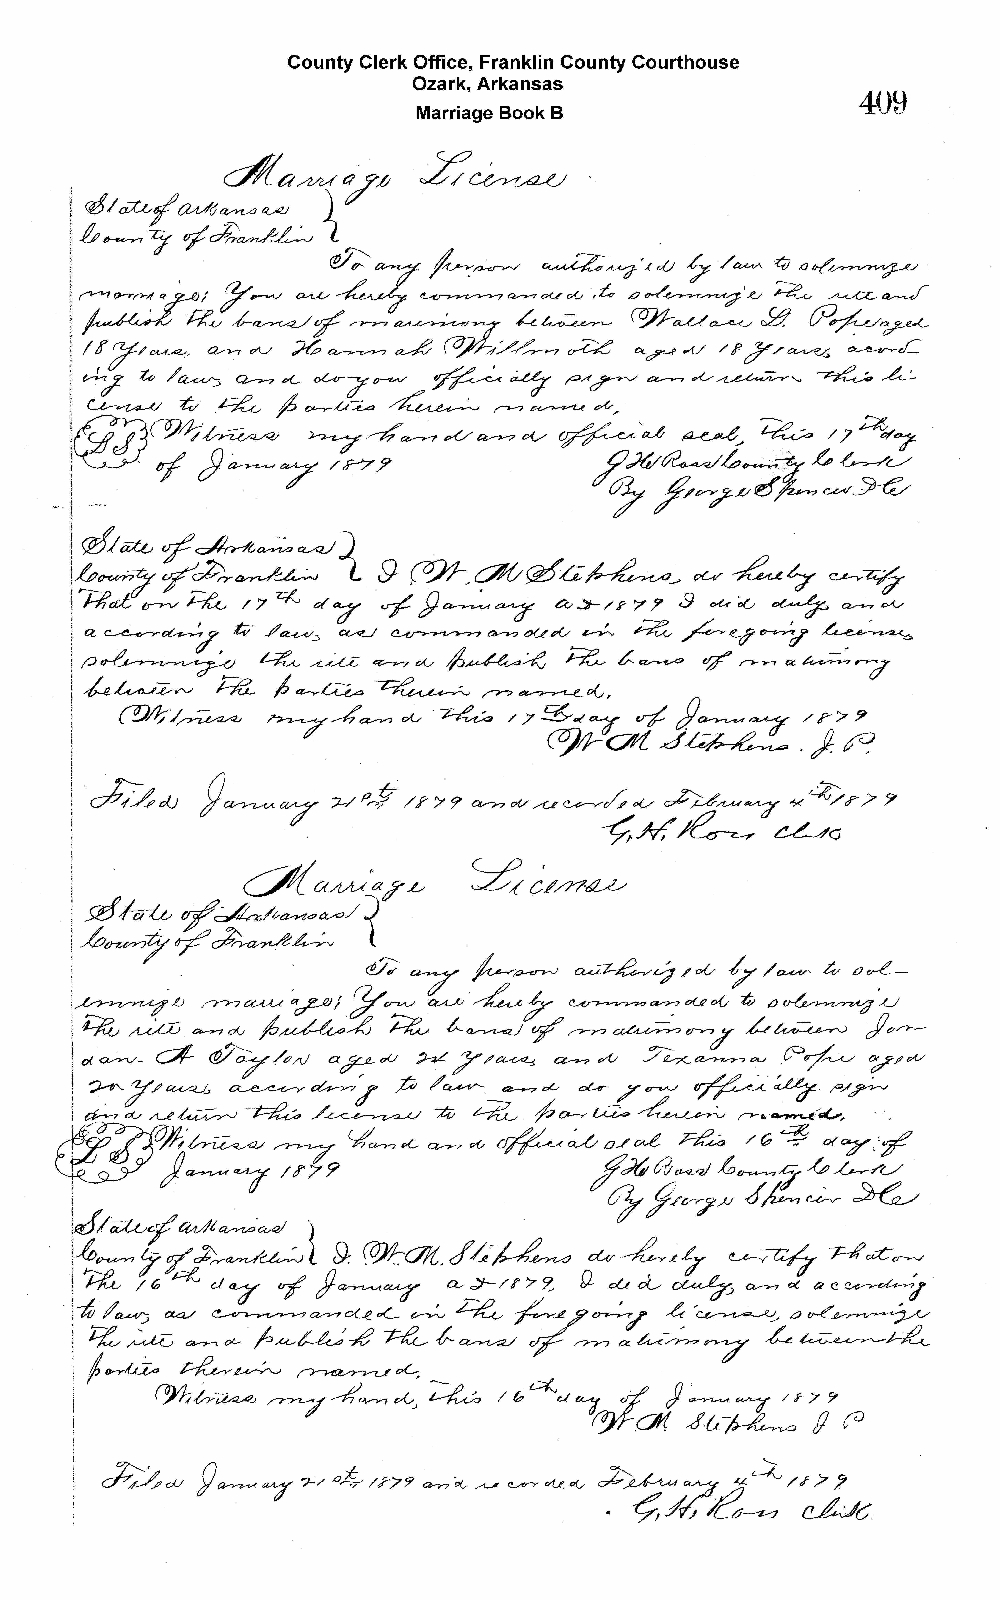 County Clerk Office, Franklin County Courthouse
Ozark, Arkansas
Marriage Book B
409
Marriage License
State of Arkansas
County of Franklin
To any person authorized by law to solemnize
marriage; You are hereby commanded to solemnize the rite and
publish the bans of matrimony between Wallace D. Pope aged
18 Years, and Hannah Willmoth aged 18 Years, acord-
ing to law, and do you officially sign and return this li-
cense to the parties herein named,
Witness my hand and official seal, this 17th day
L S
of January 1879
G H Ross County Clerk
By George Spencer D C
State of Arkansas
County of Franklin I W. M Stephens, do hereby certify
that on the 17th day of January AD 1879 I did duly, and
according to law, as commanded in the foregoing license,
solemnize the rite and publish the bans of matrimony
between the parties therein named.
Witness my hand this 17th day of January 1879
W M Stephens. J. P.
Filed January 21st 1879 and recorded February 4th 1879
G. H. Ross Clerk
Marriage License
State of Arkansas
County of Franklin
To any person authorized by law to sol-
emnize marriage; You are hereby commanded to solemnize
the rite and publish the bans of matrimony between Jor-
dan- A Taylor aged 24 Years, and Texanna Pope aged
20 Years, according to law and do you officially sign
and return this license to the parties herein named.
Witness my hand and official seal this 16th day of
L S
January 1879
G H Ross County Clerk
By George Spencer D C
State of Arkansas
County of Franklin I. W. M. Stephens do hereby certify that on
the 16th day of January AD 1879, I did duly, and according
to law, as commanded in the foregoing license, solemnize
the rite and publish the bans of matrimony between the
parties therein named,
Witness my hand, this 16th day of January 1879
W M Stephens J P
Filed January 21st 1879 and recorded February 4th 1879
G. H. Ross Clerk